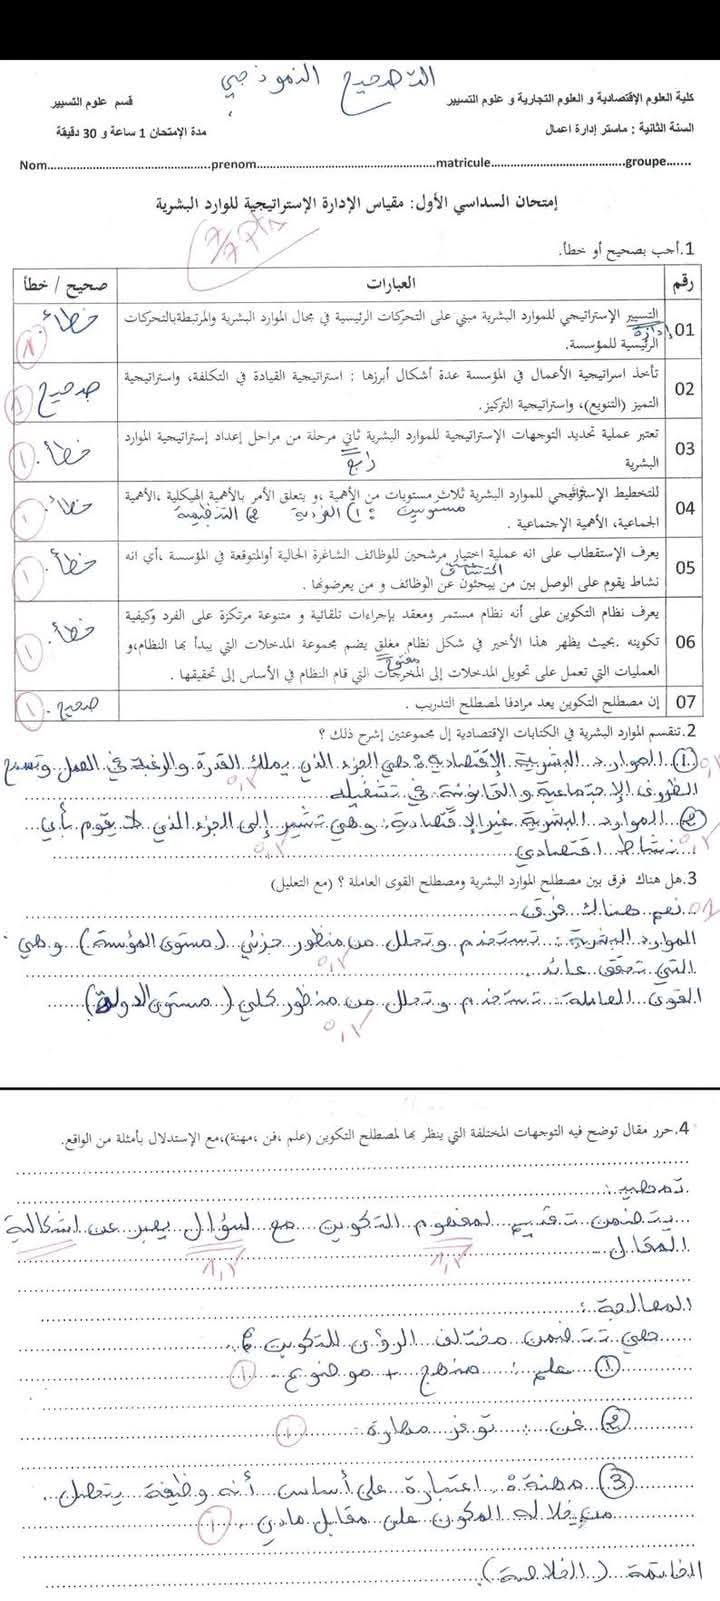 التصحيح النموذجي
كلية العلوم الإقتصادية و العلوم التجارية و علوم التسيير قسم علوم التسيير
السنة الثانية : ماستر إدارة اعمال مدة الإمتحان 1 ساعة و 30 دقيقة
Nom...............prenom...............matricule...............groupe.......
إمتحان السداسي الأول: مقياس الإدارة الإستراتيجية للوارد البشرية
7/7 pts
1.أجب بصحيح أو خطأ.
رقم العبارات صحيح / خطأ
01 التسيير الإستراتيجي للموارد البشرية مبني على التحركات الرئيسية في مجال الموارد البشرية والمرتبطةبالتحركات خطأ
إدارة
الرئيسية للمؤسسة. 1
02 تأخذ استراتيجية الأعمال في المؤسسة عدة أشكال أبرزها : استراتيجية القيادة في التكلفة، واستراتيجية صحيح 1
التميز (التنويع)، واستراتيجية التركيز.
03 تعتبر عملية تحديد التوجهات الإستراتيجية للموارد البشرية ثاني مرحلة من مراحل إعداد إستراتيجية الموارد خطأ. 1
رابع
البشرية
04 للتخطيط الإستراتيجي للموارد البشرية ثلاث مستويات من الأهمية ،و يتعلق الأمر بالأهمية الهيكلية ،الأهمية خطأ. 1
مستويين : 1) الفردية 2) التنظيمية
الجماعية، الأهمية الإجتماعية .
05 يعرف الإستقطاب على انه عملية اختيار مرشحين للوظائف الشاغرة الحالية أوالمتوقعة في المؤسسة ،أي انه خطأ. 1
اكتشاف
نشاط يقوم على الوصل بين من يبحثون عن الوظائف و من يعرضونها .
06 يعرف نظام التكوين على أنه نظام مستمر ومعقد بإجراءات تلقائية و متنوعة مرتكزة على الفرد وكيفية خطأ. 1
تكوينه .بحيث يظهر هذا الأخير في شكل نظام مغلق يضم مجموعة المدخلات التي يبدأ بها النظام،و
مفتوح
العمليات التي تعمل على تحويل المدخلات إلى المخرجات التي قام النظام في الأساس إلى تحقيقها .
07 إن مصطلح التكوين يعد مرادفا لمصطلح التدريب . صحيح. 1
2.تنقسم الموارد البشرية في الكتابات الإقتصادية إل مجموعتين إشرح ذلك ؟
① الموارد البشرية الإقتصادية : هي الجزء الذي يملك القدرة والرغبة في العمل وتسمح
الظروف الإجتماعية والقانونية في تشغيله
② الموارد البشرية غير الإقتصادية: وهي تشير إلى الجزء الذي لا يقوم بأي
نشاط اقتصادي
3.هل هناك فرق بين مصطلح الموارد البشرية ومصطلح القوى العاملة ؟ (مع التعليل)
نعم هناك فرق.
الموارد البشرية : تستخدم وتحلل من منظور جزئي (مستوى المؤسسة) وهي
التي تحقق عائد.
القوى العاملة: تستخدم وتحلل من منظور كلي (مستوى الدولة)
4.حرر مقال توضح فيه التوجهات المختلفة التي ينظر بها لمصطلح التكوين (علم ،فن ،مهنة)،مع الإستدلال بأمثلة من الواقع.
تمهيد :
يتضمن تقديم لمفهوم التكوين مع لسؤال يعبر عن اشكالية
المقال
المعالجة :
هي تتضمن مختلف الرؤى للتكوين :
① علم : منهج + موضوع. 1
② فن : توفر مهارة 1
③ مهنة : اعتباره على أساس أنه وظيفة يتحصل
من خلاله المكون على مقابل مادي. 1
الخاتمة (الخلاصة).